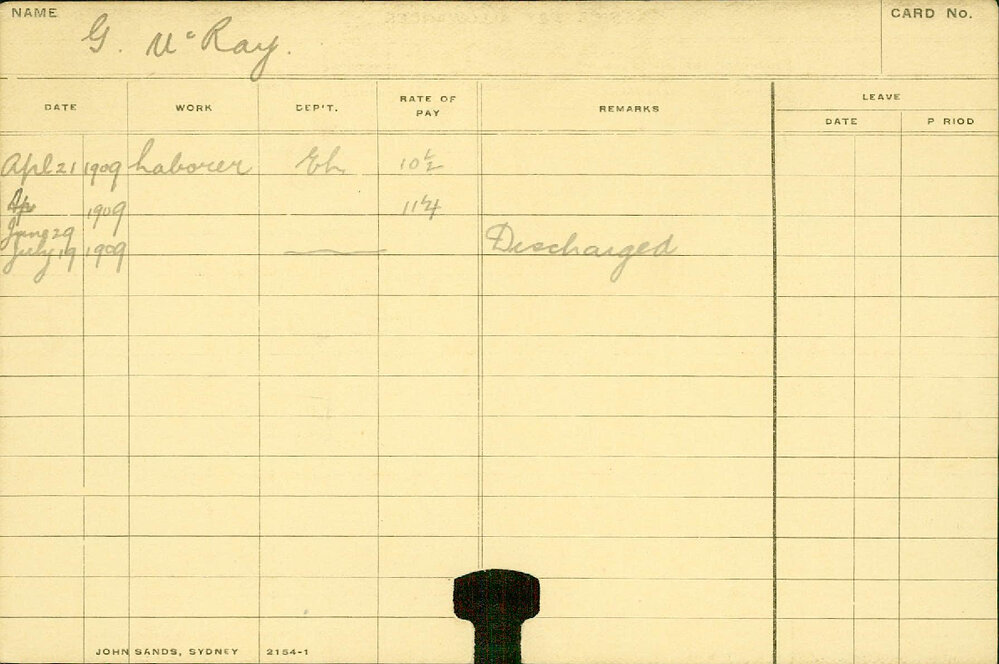 NAME G. McRay. CARD No.
LEAVE
DATE WORK DEP'T. RATE OF PAY REMARKS DATE P RIOD
Apl 21 1909 Laborer Eh 10½
1909 11¼
June 29
July 19 1909 Discharged
JOHN SANDS, SYDNEY 2154-1